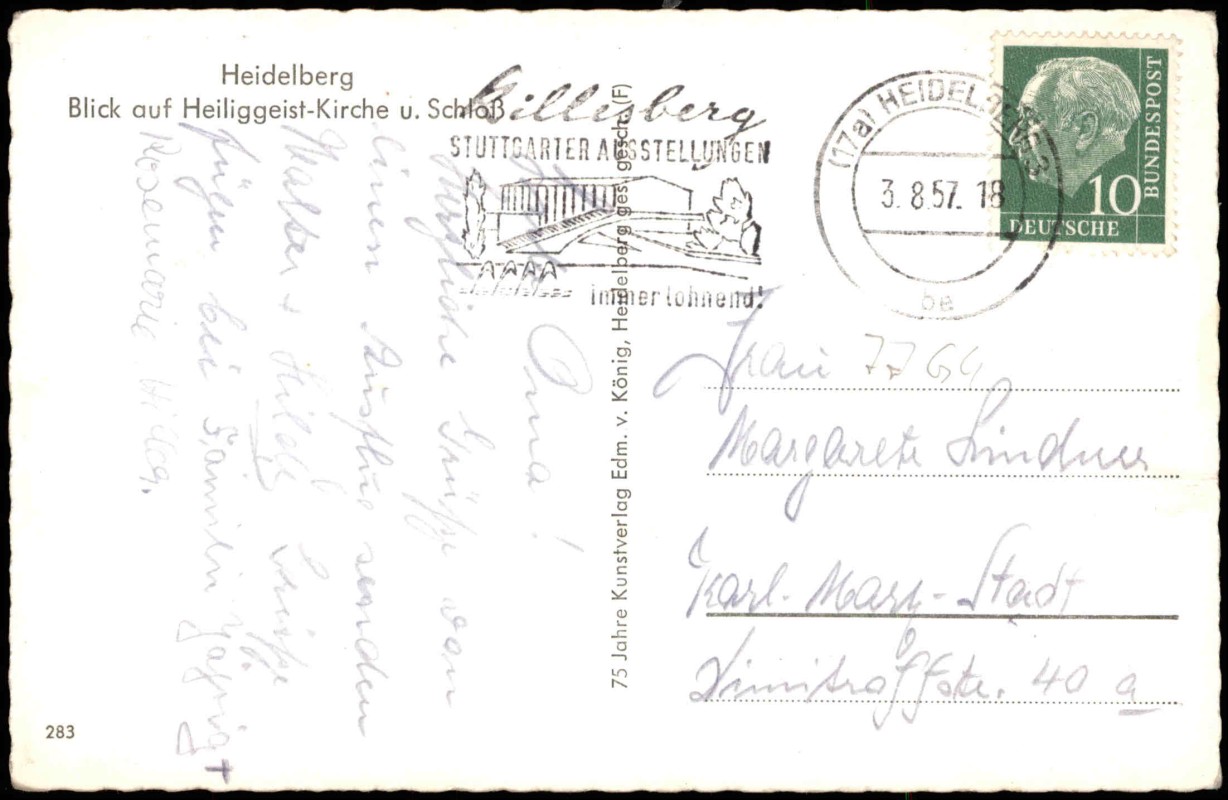 Heidelberg
Blick auf Heiliggeist-Kirche u. Schloß
Killesberg
STUTTGARTER AUSSTELLUNGEN
immer lohnend!
(17a) HEIDELBERG
3.8.57. 18
be
10
DEUTSCHE
BUNDESPOST
75 Jahre Kunstverlag Edm. v. König, Heidelberg ges. gesch. (F)
Oma!
Herzliche Grüße von
einem Ausflug senden
Walter + Hilde Grüße
bei Familie
Rosemarie
Frau
Margarete Lindner
Karl-Marx-Stadt
Dimitroffstr. 40 a
283